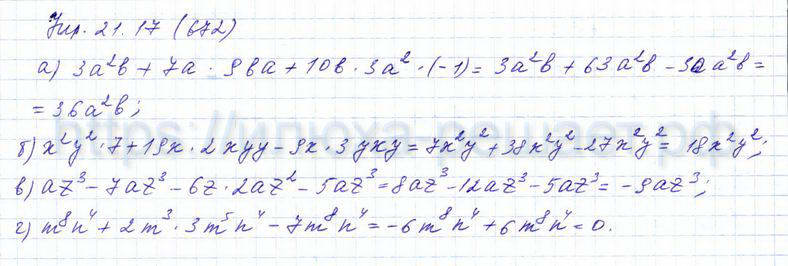 Упр. 21.17 (672)
а) 3a²b + 7a · 9ba + 10b · 3a² · (-1) = 3a²b + 63a²b - 30a²b =
= 36a²b;
б) x²y² · 7 + 19x · 2xyy - 9x · 3yxy = 7x²y² + 38x²y² - 27x²y² = 18x²y²;
в) az³ - 7az³ - 6z · 2az² - 5az³ = 8az³ - 12az³ - 5az³ = -9az³;
г) m⁸n⁴ + 2m³ · 3m⁵n⁴ - 7m⁸n⁴ = -6m⁸n⁴ + 6m⁸n⁴ = 0.
https://илюха-решает.рф